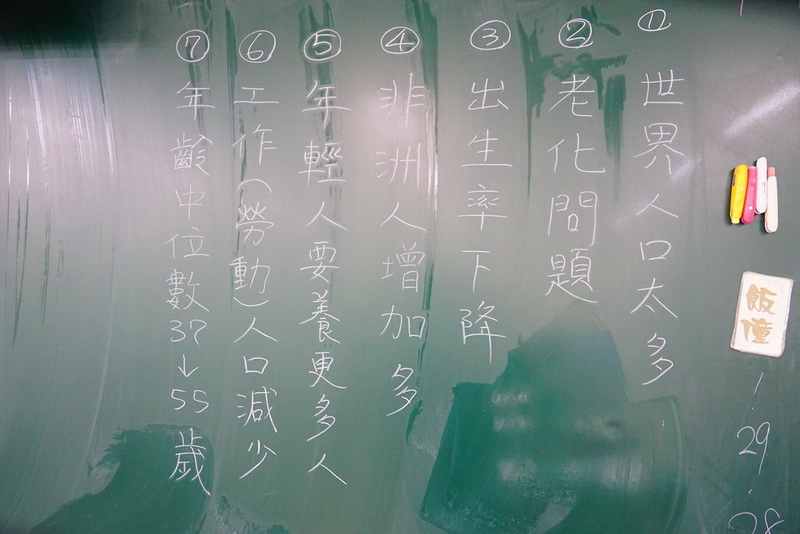 ①世界人口太多
②老化問題
③出生率下降
④非洲人增加多
⑤年輕人要養更多人
⑥工作(勞動)人口減少
⑦年齡中位數37↓55歲
飯僮
29
28